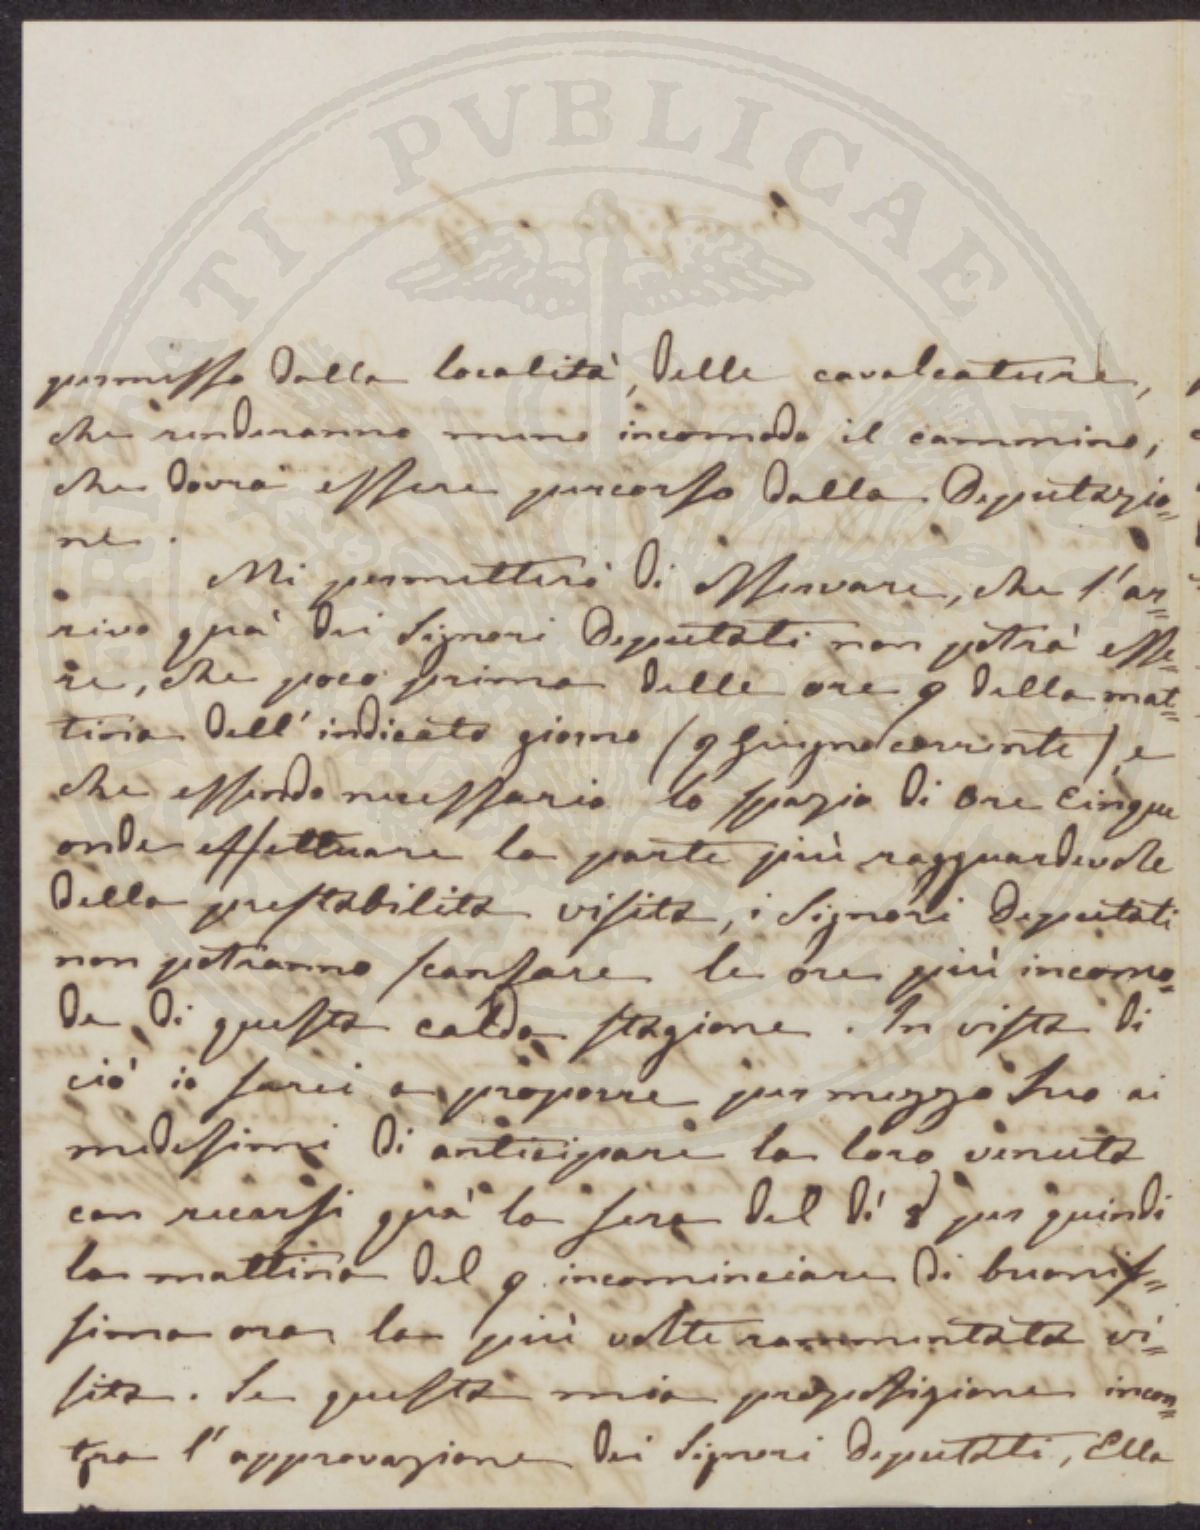 PERITATI PVBLICAE
permesso dalla località, delle cavalcature,
che renderanno meno incomodo il cammino,
che dovrà essere percorso dalla Deputazio=
ne.
Mi permetterò di osservare, che l'ar=
rivo quà dei Signori Deputati non potrà esse=
re, che poco prima delle ore 9 della mat=
tina dell'indicato giorno (9 Giugno corrente), e
che essendo necessario lo spazio di ore cinque
onde effettuare la parte più ragguardevole
della prestabilita visita, i Signori Deputati
non potranno scansare le ore più incomo=
de di questa calda stagione. In vista di
ciò io sarei a proporre per mezzo Suo ai
medesimi di anticipare la loro venuta
con recarsi quà la sera del dì 8 per quindi
la mattina del 9 incominciare di buonis=
sima ora la più volte rammentata vi=
sita. Se questa mia proposizione incon=
tra l'approvazione dei Signori Deputati, Ella